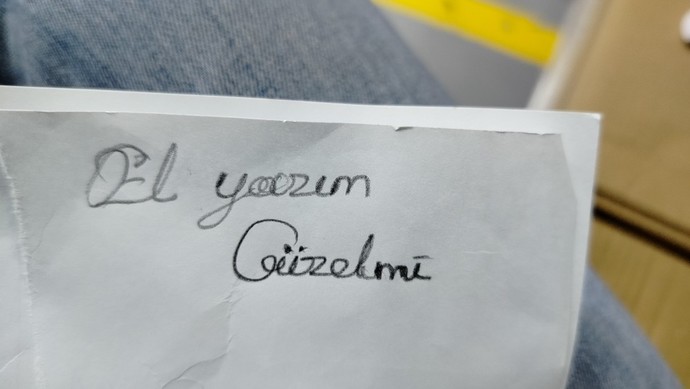 El yazım
Güzelmi